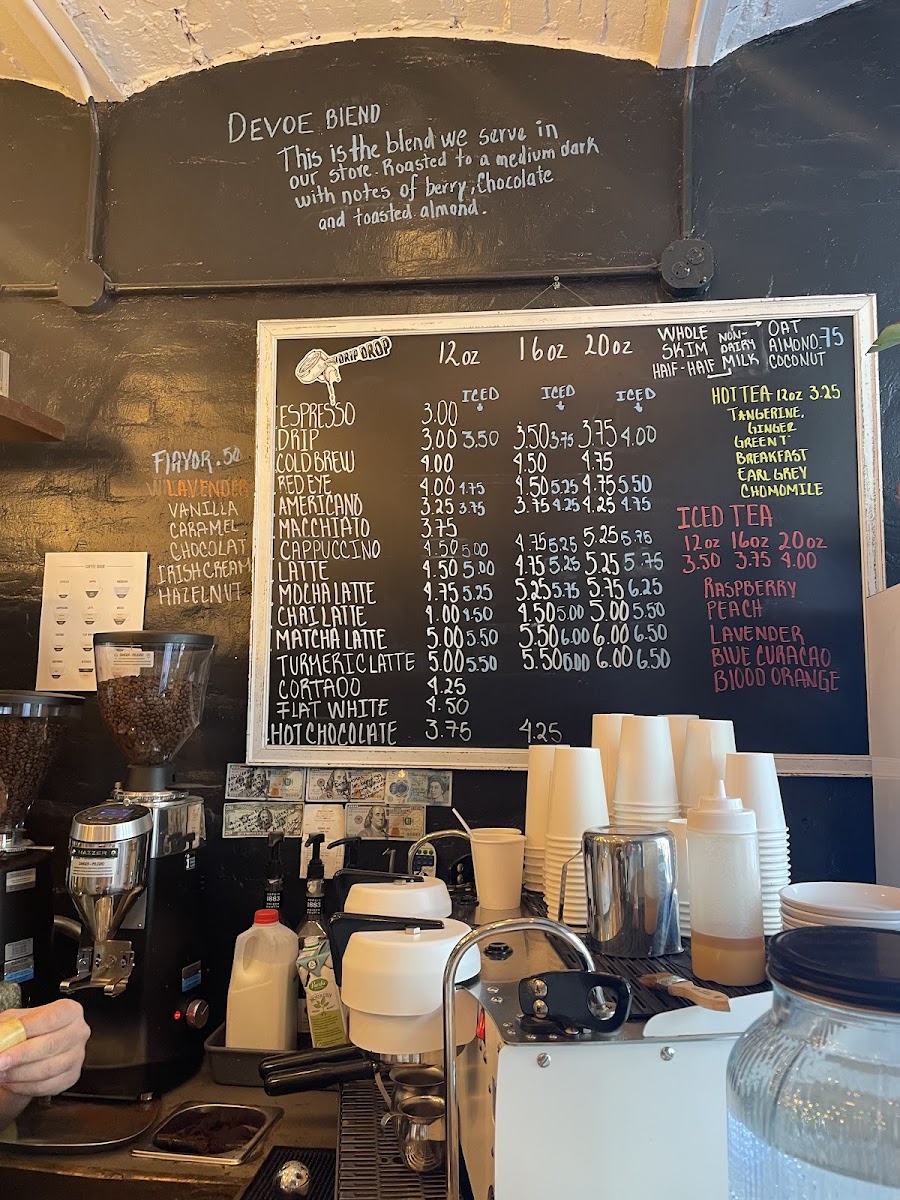 DEVOE BLEND
This is the blend we serve in
our store. Roasted to a medium dark
with notes of berry, Chocolate
and toasted almond.
DRIP DROP
12oz 16oz 20oz
WHOLE
SKIM
HALF-HALF
NON-
DAIRY
MILK
OAT
ALMOND .75
COCONUT
ICED ICED ICED
ESPRESSO 3.00
DRIP 3.00 3.50 3.50 3.75 3.75 4.00
COLD BREW 4.00 4.50 4.75
RED EYE 4.00 4.75 4.50 5.25 4.75 5.50
AMERICANO 3.25 3.75 3.75 4.25 4.25 4.75
MACCHIATO 3.75
CAPPUCCINO 4.50 5.00 4.75 5.25 5.25 5.75
LATTE 4.50 5.00 4.75 5.25 5.25 5.75
MOCHA LATTE 4.75 5.25 5.25 5.75 5.75 6.25
CHAI LATTE 4.00 4.50 4.50 5.00 5.00 5.50
MATCHA LATTE 5.00 5.50 5.50 6.00 6.00 6.50
TURMERIC LATTE 5.00 5.50 5.50 6.00 6.00 6.50
CORTADO 4.25
FLAT WHITE 4.50
HOT CHOCOLATE 3.75 4.25
HOT TEA 12oz 3.25
TANGERINE,
GINGER
GREEN T
BREAKFAST
EARL GREY
CHOMOMILE
ICED TEA
12oz 16oz 20oz
3.50 3.75 4.00
RASPBERRY
PEACH
LAVENDER
BLUE CURACAO
BLOOD ORANGE
FLAVOR .50
LAVENDER
VANILLA
CARAMEL
CHOCOLAT
IRISH CREAM
HAZELNUT
1883
1883